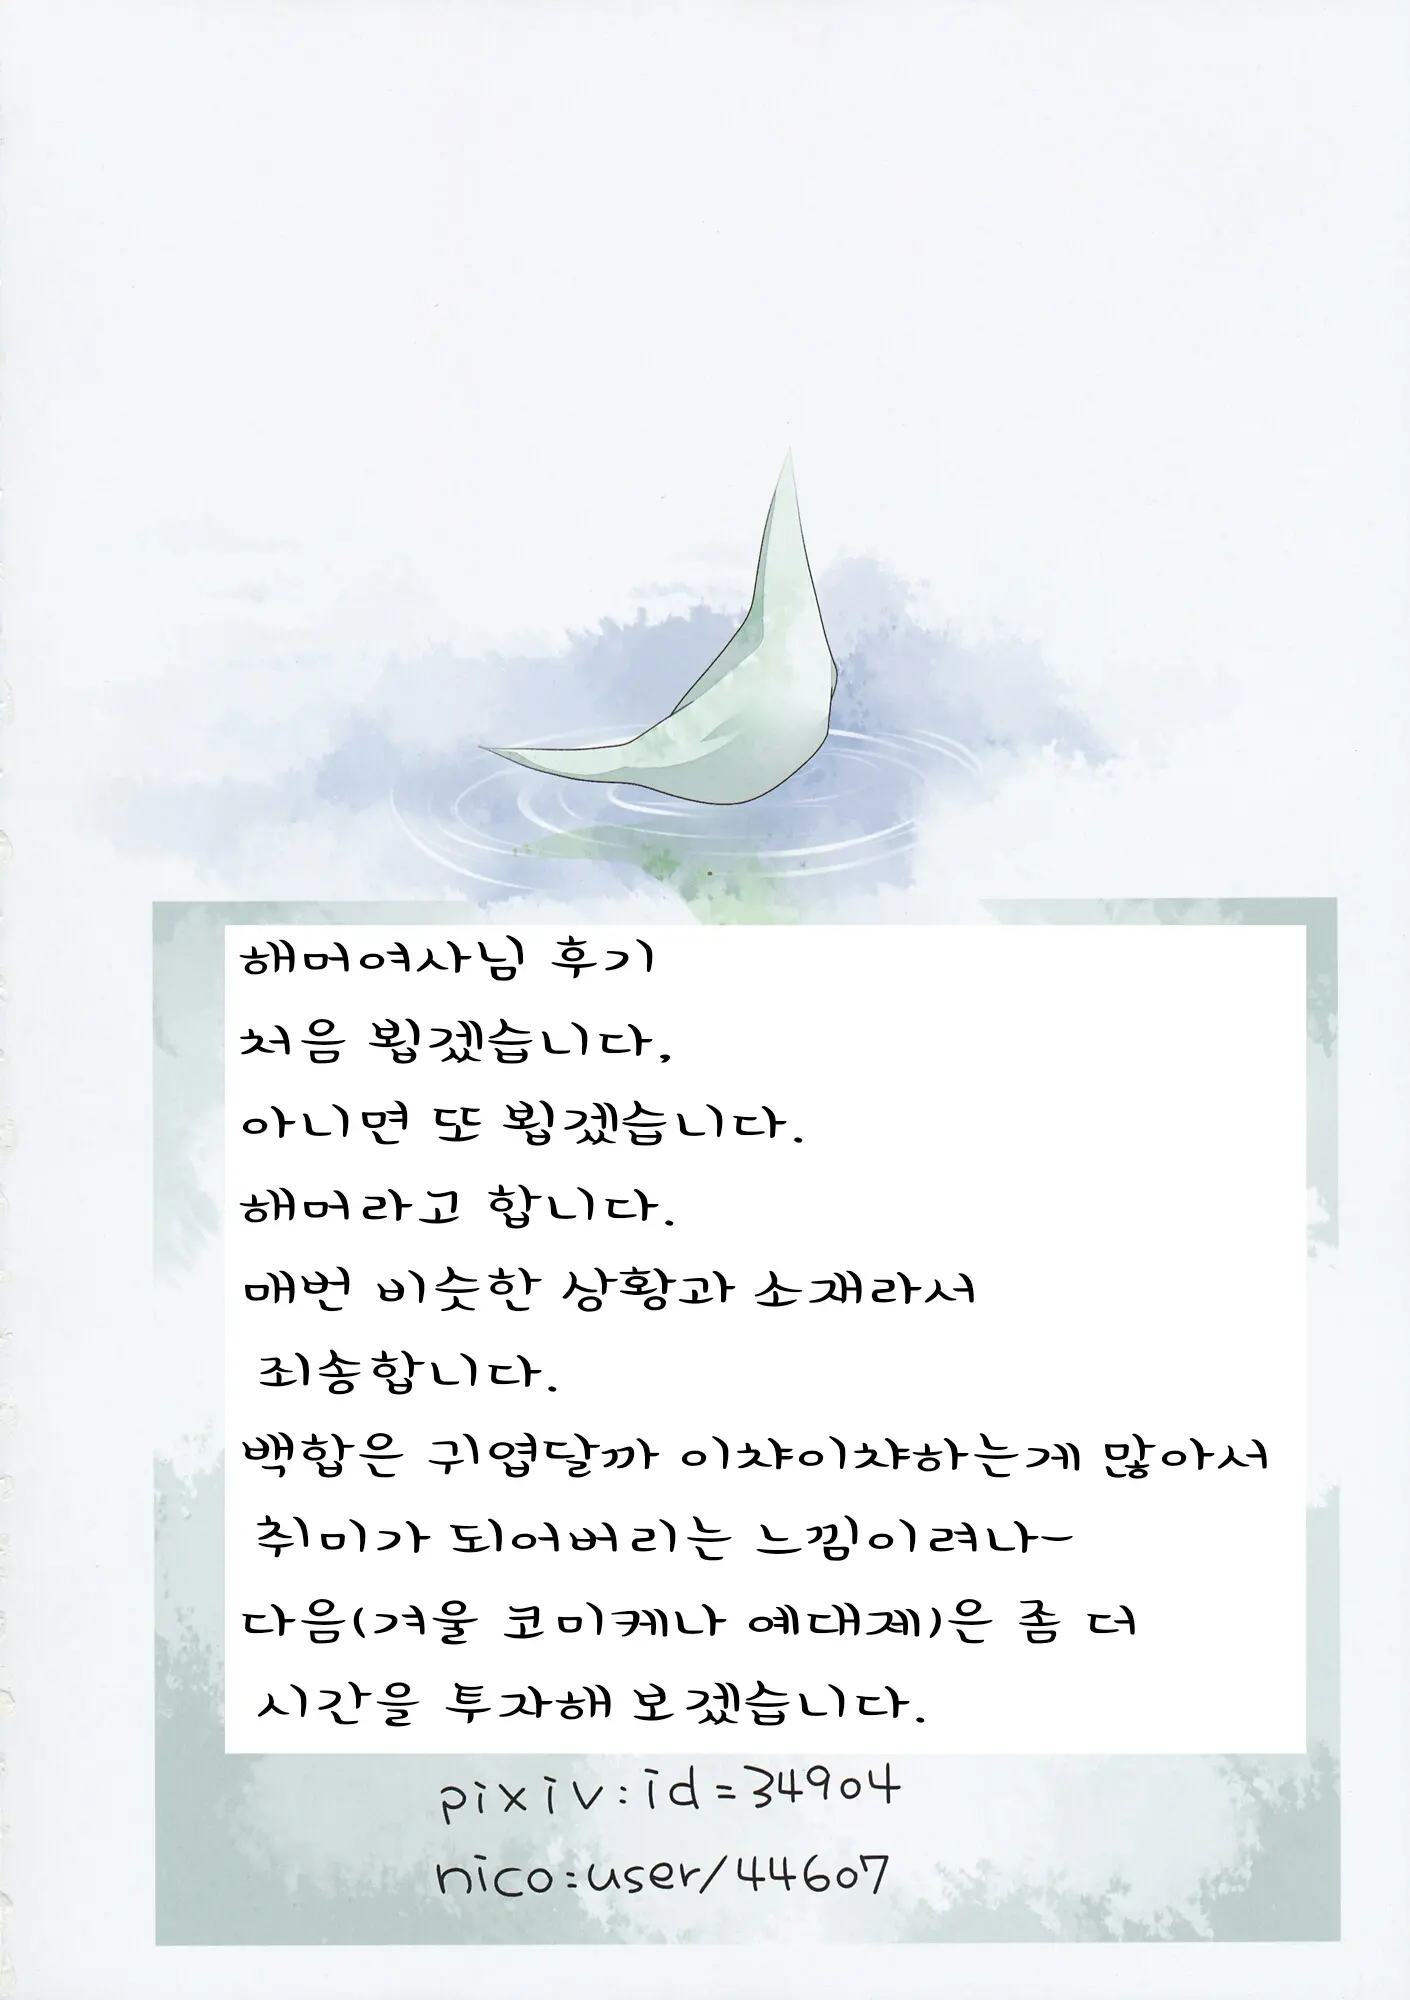 해머여사님 후기
처음 뵙겠습니다,
아니면 또 뵙겠습니다.
해머라고 합니다.
매번 비슷한 상황과 소재라서
죄송합니다.
백합은 귀엽달까 이챠이챠하는게 많아서
취미가 되어버리는 느낌이려나~
다음(겨울 코미케나 예대제)은 좀 더
시간을 투자해 보겠습니다.
pixiv:id=34904
nico:user/44607